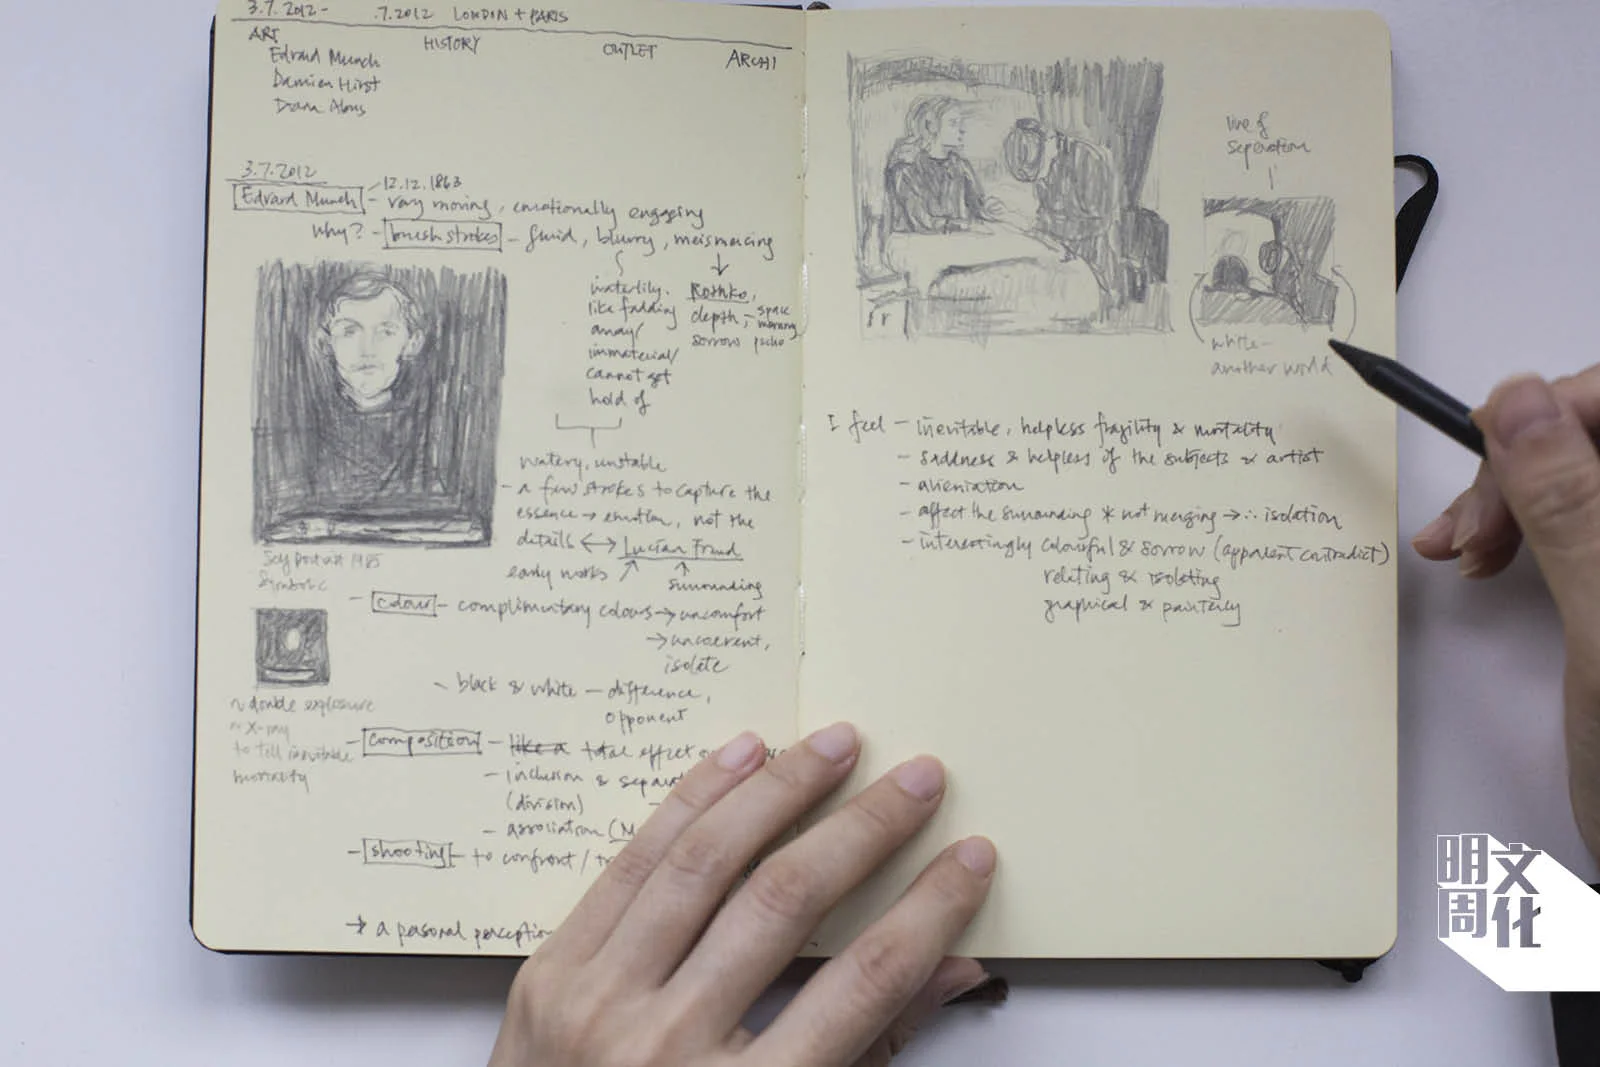 3.7.2012 - .7.2012 LONDON + PARIS
ART
HISTORY
OUTLET
ARCHI
Edvard Munch
Damien Hirst
Diana Abus
3.7.2012
12.12.1863
Edvard Munch - very moving, emotionally engaging
why? - brush strokes - fluid, blurry, meismercing
waterlily.
like fadding
away/
immaterial/
cannot get
hold of
Rothko,
depth, - space
sorrow
watery, unstable
- a few strokes to capture the
essence → emotion, not the
details ↔ Lucian Freud
early works
surrounding
Self Portrait 1985
Symbolic
- colour - complimentary colours → uncomfort
→ uncoerent,
isolate
- black & white - difference,
opponent
~ double explosure
~ X-ray
to tell inevitable
mortality
- composition - like a total effect
- inclusion &
(division)
- association (M
- shooting - to confront /
→ a personal perception
line of
separation
white -
another world
I feel - inevitable, helpless fragility & mortality
- saddness & helpless of the subjects & artist
- alieniation
- affect the surrounding * not merging → ∴ isolation
- interestingly colourful & sorrow (apparent contradict)
relating & isolating
graphical & painterly
明周
文化